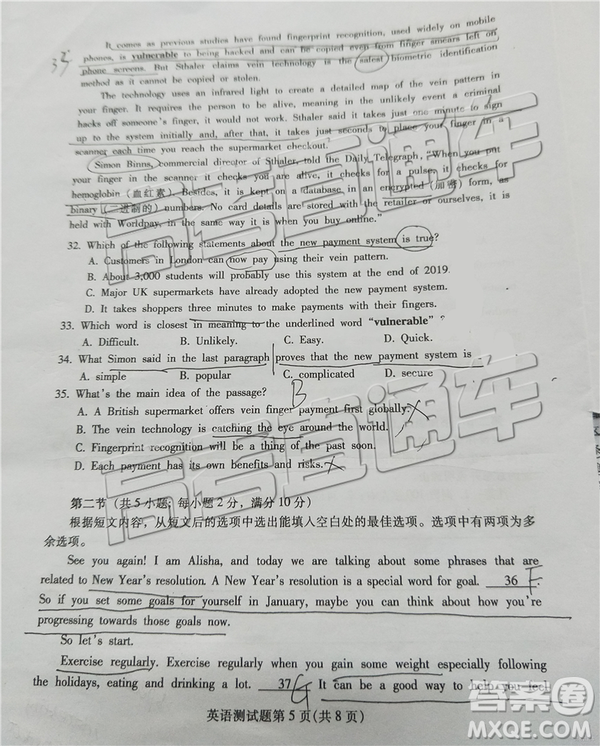 It comes as previous studies have found fingerprint recognition, used widely on mobile
phones, is vulnerable to being hacked and can be copied even from finger smears left on
phone screens. But Sthaler claims vein technology is the safest biometric identification
method as it cannot be copied or stolen.
The technology uses an infrared light to create a detailed map of the vein pattern in
your finger. It requires the person to be alive, meaning in the unlikely event a criminal
hacks off someone's finger, it would not work. Sthaler said it takes just one minute to sign
up to the system initially and, after that, it takes just seconds to place your finger in a
scanner each time you reach the supermarket checkout.
Simon Binns, commercial director of Sthaler, told the Daily Telegraph, "When you put
your finger in the scanner it checks you are alive, it checks for a pulse, it checks for
hemoglobin (血红素). Besides, it is kept on a database in an encrypted (加密) form, as
binary (二进制的) numbers. No card details are stored with the retailer or ourselves, it is
held with Worldpay, in the same way it is when you buy online."
32. Which of the following statements about the new payment system is true?
A. Customers in London can now pay using their vein pattern.
B. About 3,000 students will probably use this system at the end of 2019.
C. Major UK supermarkets have already adopted the new payment system.
D. It takes shoppers three minutes to make payments with their fingers.
33. Which word is closest in meaning to the underlined word "vulnerable"?
A. Difficult. B. Unlikely. C. Easy. D. Quick.
34. What Simon said in the last paragraph proves that the new payment system is
A. simple B. popular C. complicated D. secure
35. What's the main idea of the passage? B
A. A British supermarket offers vein finger payment first globally.
B. The vein technology is catching the eye around the world.
C. Fingerprint recognition will be a thing of the past soon.
D. Each payment has its own benefits and risks.
第二节 (共5小题; 每小题2分, 满分10分)
根据短文内容, 从短文后的选项中选出能填入空白处的最佳选项。选项中有两项为多
余选项。
See you again! I am Alisha, and today we are talking about some phrases that are
related to New Year's resolution. A New Year's resolution is a special word for goal. 36 F
So if you set some goals for yourself in January, maybe you can think about how you're
progressing towards those goals now.
So let's start.
Exercise regularly. Exercise regularly when you gain some weight especially following
the holidays, eating and drinking a lot. 37 G It can be a good way to help you feel
英语测试题第5页(共8页)
答案圈
MXQE.COM
高考直通车